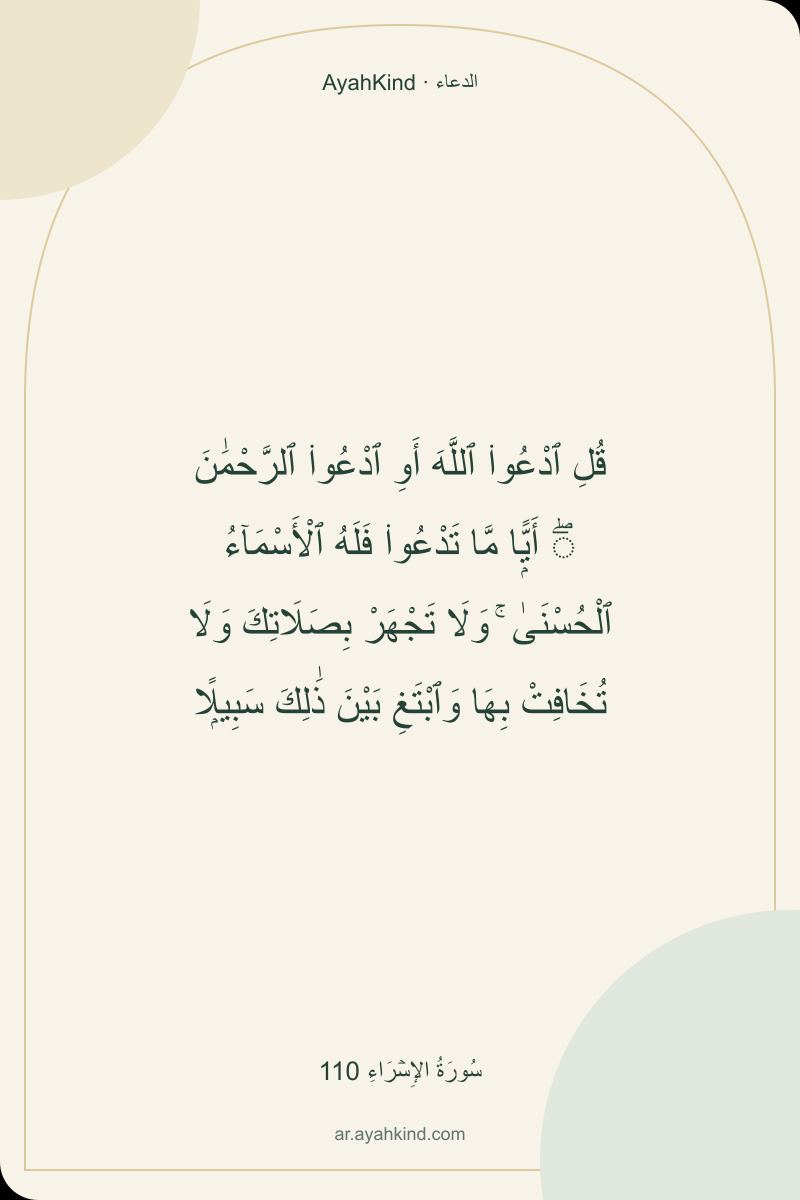 AyahKind · الدعاء
قُلِ ٱدْعُوا۟ ٱللَّهَ أَوِ ٱدْعُوا۟ ٱلرَّحْمَٰنَ
ۖ أَيًّۭا مَّا تَدْعُوا۟ فَلَهُ ٱلْأَسْمَآءُ
ٱلْحُسْنَىٰ ۚ وَلَا تَجْهَرْ بِصَلَاتِكَ وَلَا
تُخَافِتْ بِهَا وَٱبْتَغِ بَيْنَ ذَٰلِكَ سَبِيلًۭا
سُورَةُ الإِسۡرَاءِ 110
ar.ayahkind.com